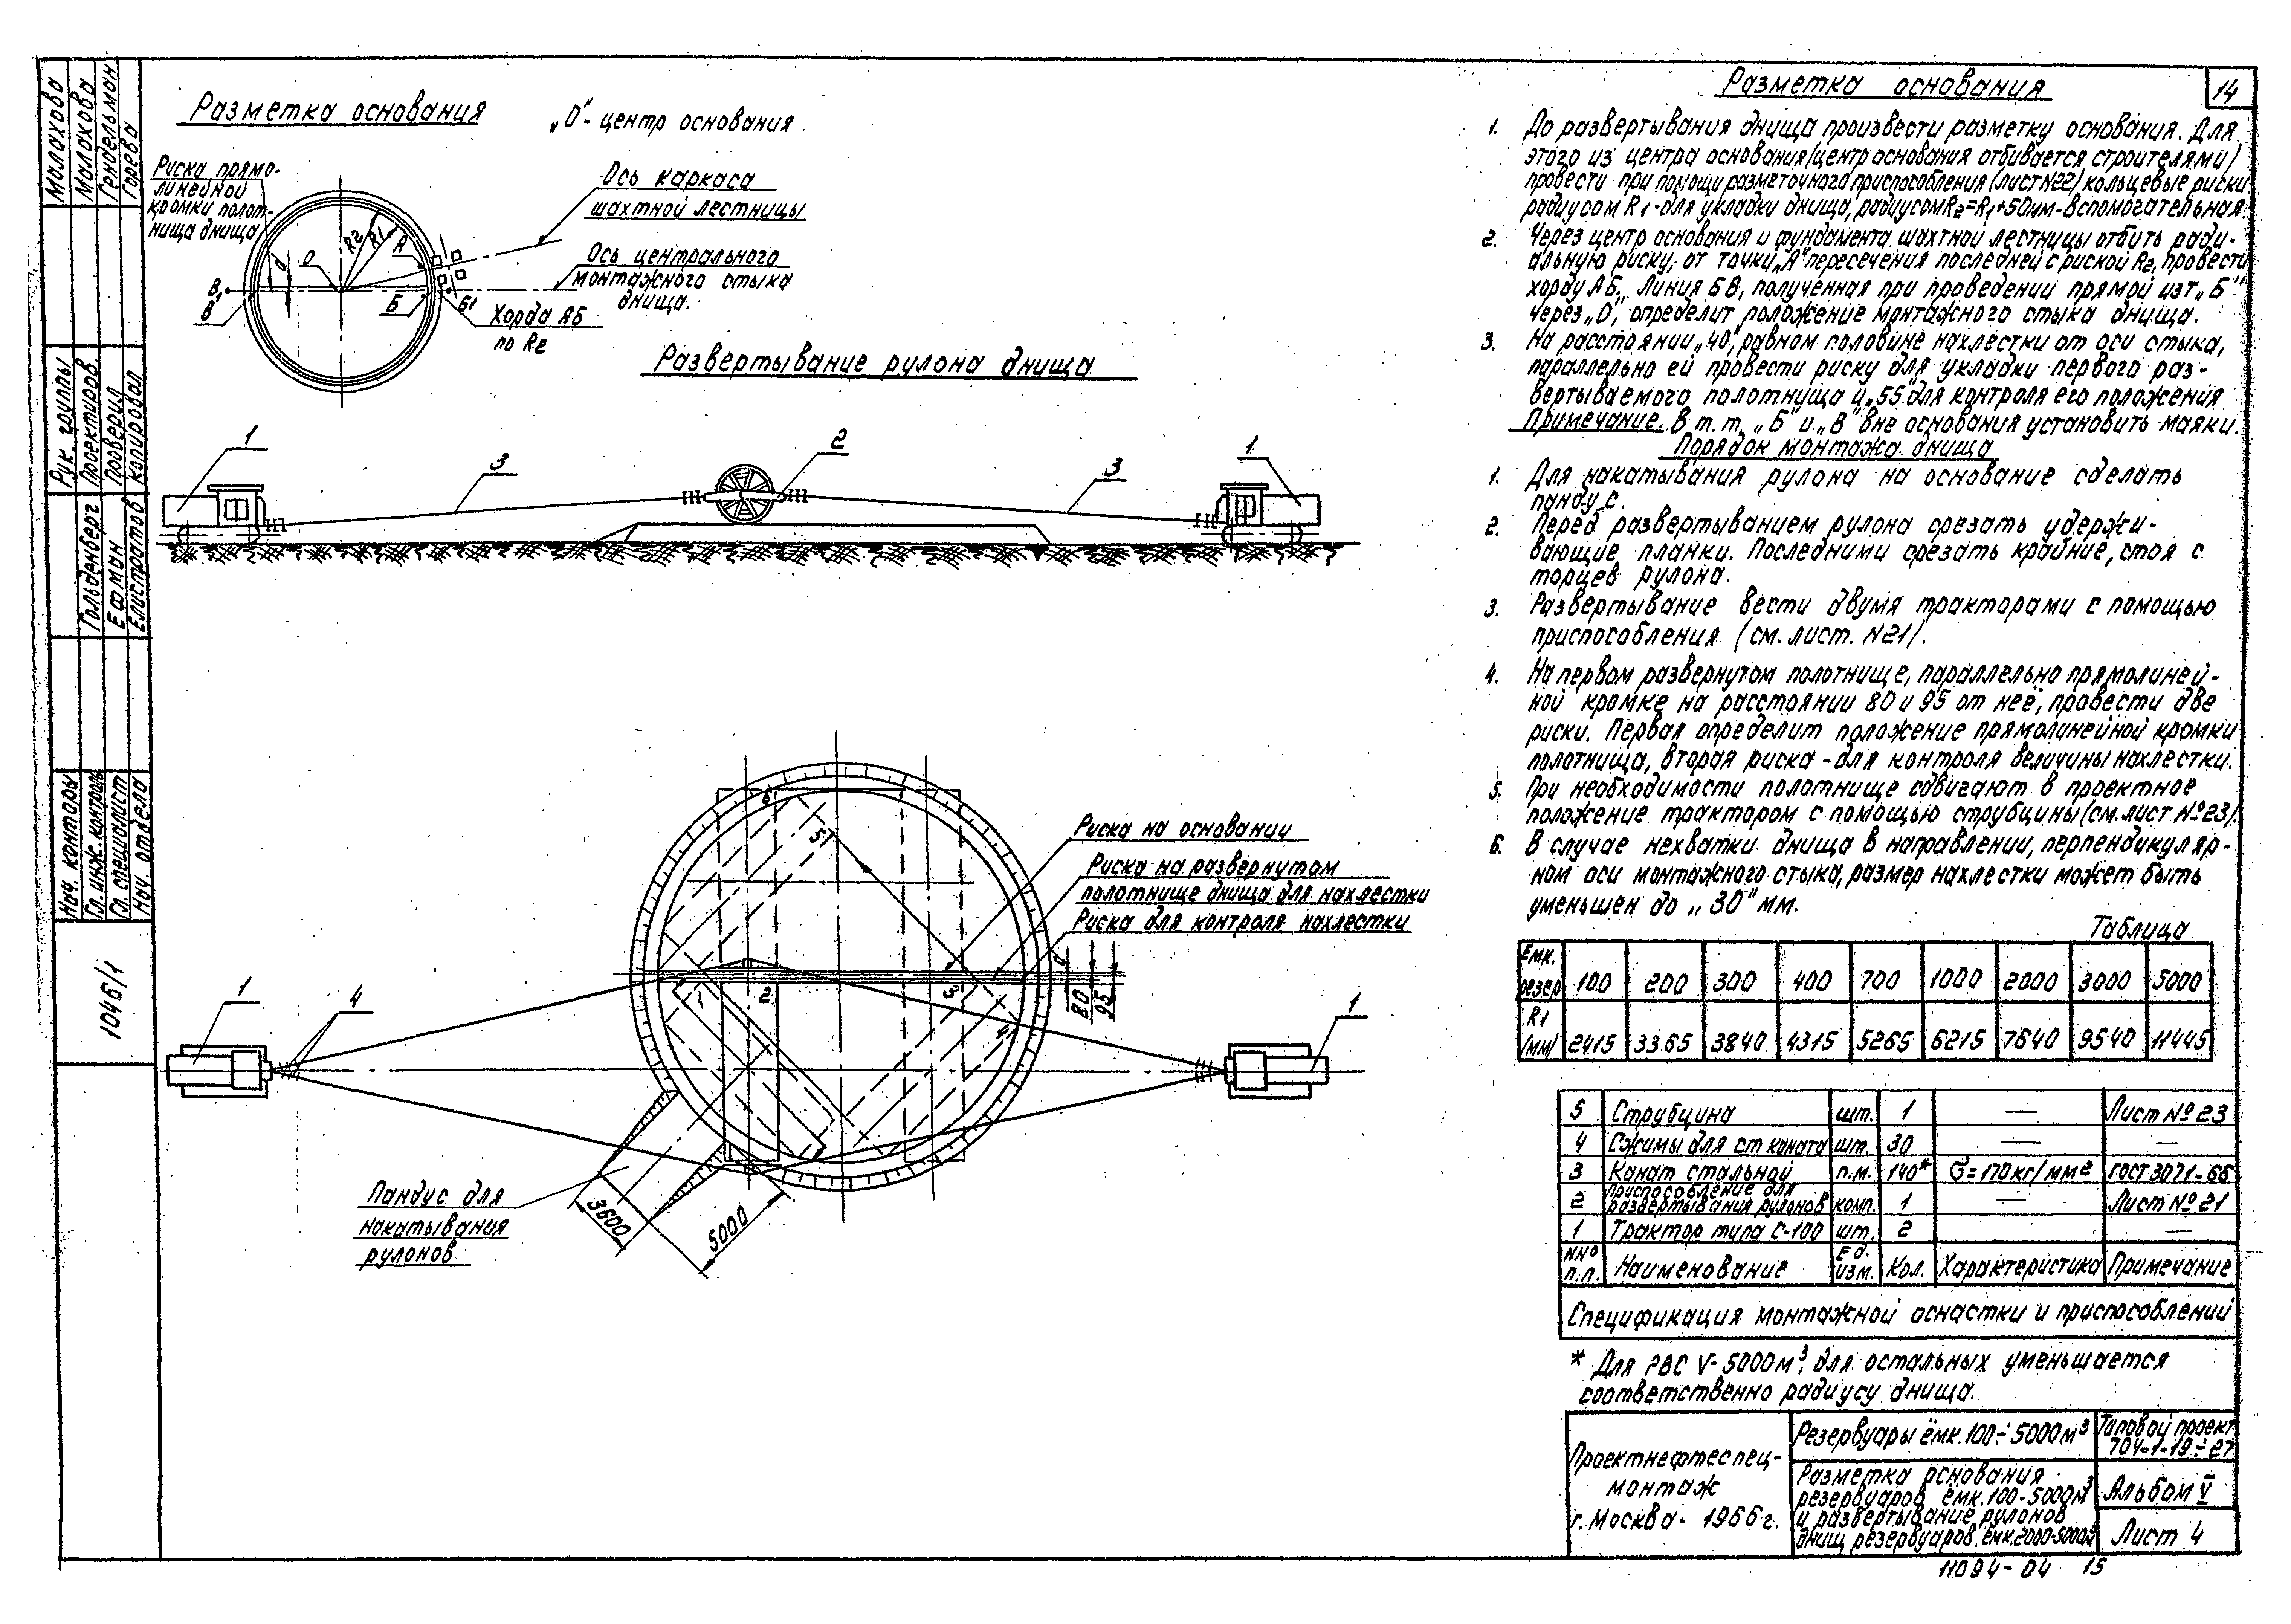 Разметка основания
„О"- центр основания
Риска прямо-
линейной
кромки полот-
нища днища
Ось каркаса
шахтной лестницы
Ось центрального
монтажного стыка
днища.
Хорда АБ
по R2
R2
R1
А
О
d
В1
В
Б
Б1
Развертывание рулона днища
1
3
2
3
1
Риска на основании
Риска на развёрнутом
полотнище днища для нахлестки
Риска для контроля нахлестки
6
5
1
2
3
4
80
95
1
4
1
Пандус для
накатывания
рулонов
3600
5000
14
Разметка основания
1. До развертывания днища произвести разметку основания. Для
этого из центра основания (центр основания отбивается строителями)
провести при помощи разметочного приспособления (лист №22) кольцевые риски
радиусом R1-для укладки днища, радиусом R2=R1+50мм-вспомогательная
2. Через центр основания и фундамента шахтной лестницы отбить ради-
альную риску; от точки „А" пересечения последней с риской R2, провести
хорду АБ. Линия БВ, полученная при проведении прямой из т. „Б"
через „О", определит положение монтажного стыка днища.
3. На расстоянии „40", равном половине нахлестки от оси стыка,
параллельно ей провести риску для укладки первого раз-
вертываемого полотнища и „55" для контроля его положения
Примечание. В т.т. „Б" и „В" вне основания установить маяки.
Порядок монтажа днища
1. Для накатывания рулона на основание сделать
пандус.
2. Перед развертыванием рулона срезать удержи-
вающие планки. Последними срезать крайние, стоя с
торцев рулона.
3. Развертывание вести двумя тракторами с помощью
приспособления (см. лист. №21).
4. На первом развернутом полотнище, параллельно прямолиней-
ной кромке на расстоянии 80 и 95 от неё, провести две
риски. Первая определит положение прямолинейной кромки
полотнища, вторая риска - для контроля величины нахлестки.
5. При необходимости полотнище сдвигают в проектное
положение трактором с помощью струбцины (см. лист №23)
6. В случае нехватки днища в направлении, перпендикуляр-
ном оси монтажного стыка, размер нахлестки может быть
уменьшен до „30" мм.
Таблица
Емк. резер 100 200 300 400 700 1000 2000 3000 5000
R1 (мм) 2415 3365 3840 4315 5265 6215 7640 9540 11445
5 Струбцина шт. 1 — Лист №23
4 Сжимы для ст каната шт. 30 — —
3 Канат стальной п.м. 140* σ=170кг/мм2 ГОСТ 3071-66
2 Приспособление для развертывания рулонов комп. 1 — Лист №21
1 Трактор типа С-100 шт. 2 —
№№ п.п. Наименование Ед. изм. Кол. Характеристика Примечание
Спецификация монтажной оснастки и приспособлений
* Для РВС V-5000м3, для остальных уменьшается
соответственно радиусу днища.
Проектнефтеспец-
монтаж
г. Москва. 1966г.
Резервуары ёмк. 100÷5000м3
Разметка основания
резервуаров ёмк. 100-5000м3
и развертывание рулонов
днищ резервуаров ёмк. 2000-5000м3
Типовой проект
704-1-19÷27
Альбом V
Лист 4
11094-04 15
Малахова
Малахова
Гендельман
Горева
Рук. группы
Проектиров.
Проверил
Копировал
Гольденберг
Ефман
Елистратов
Нач. конторы
Гл. инж. контроль
Гл. специалист
Нач. отдела
1046/1